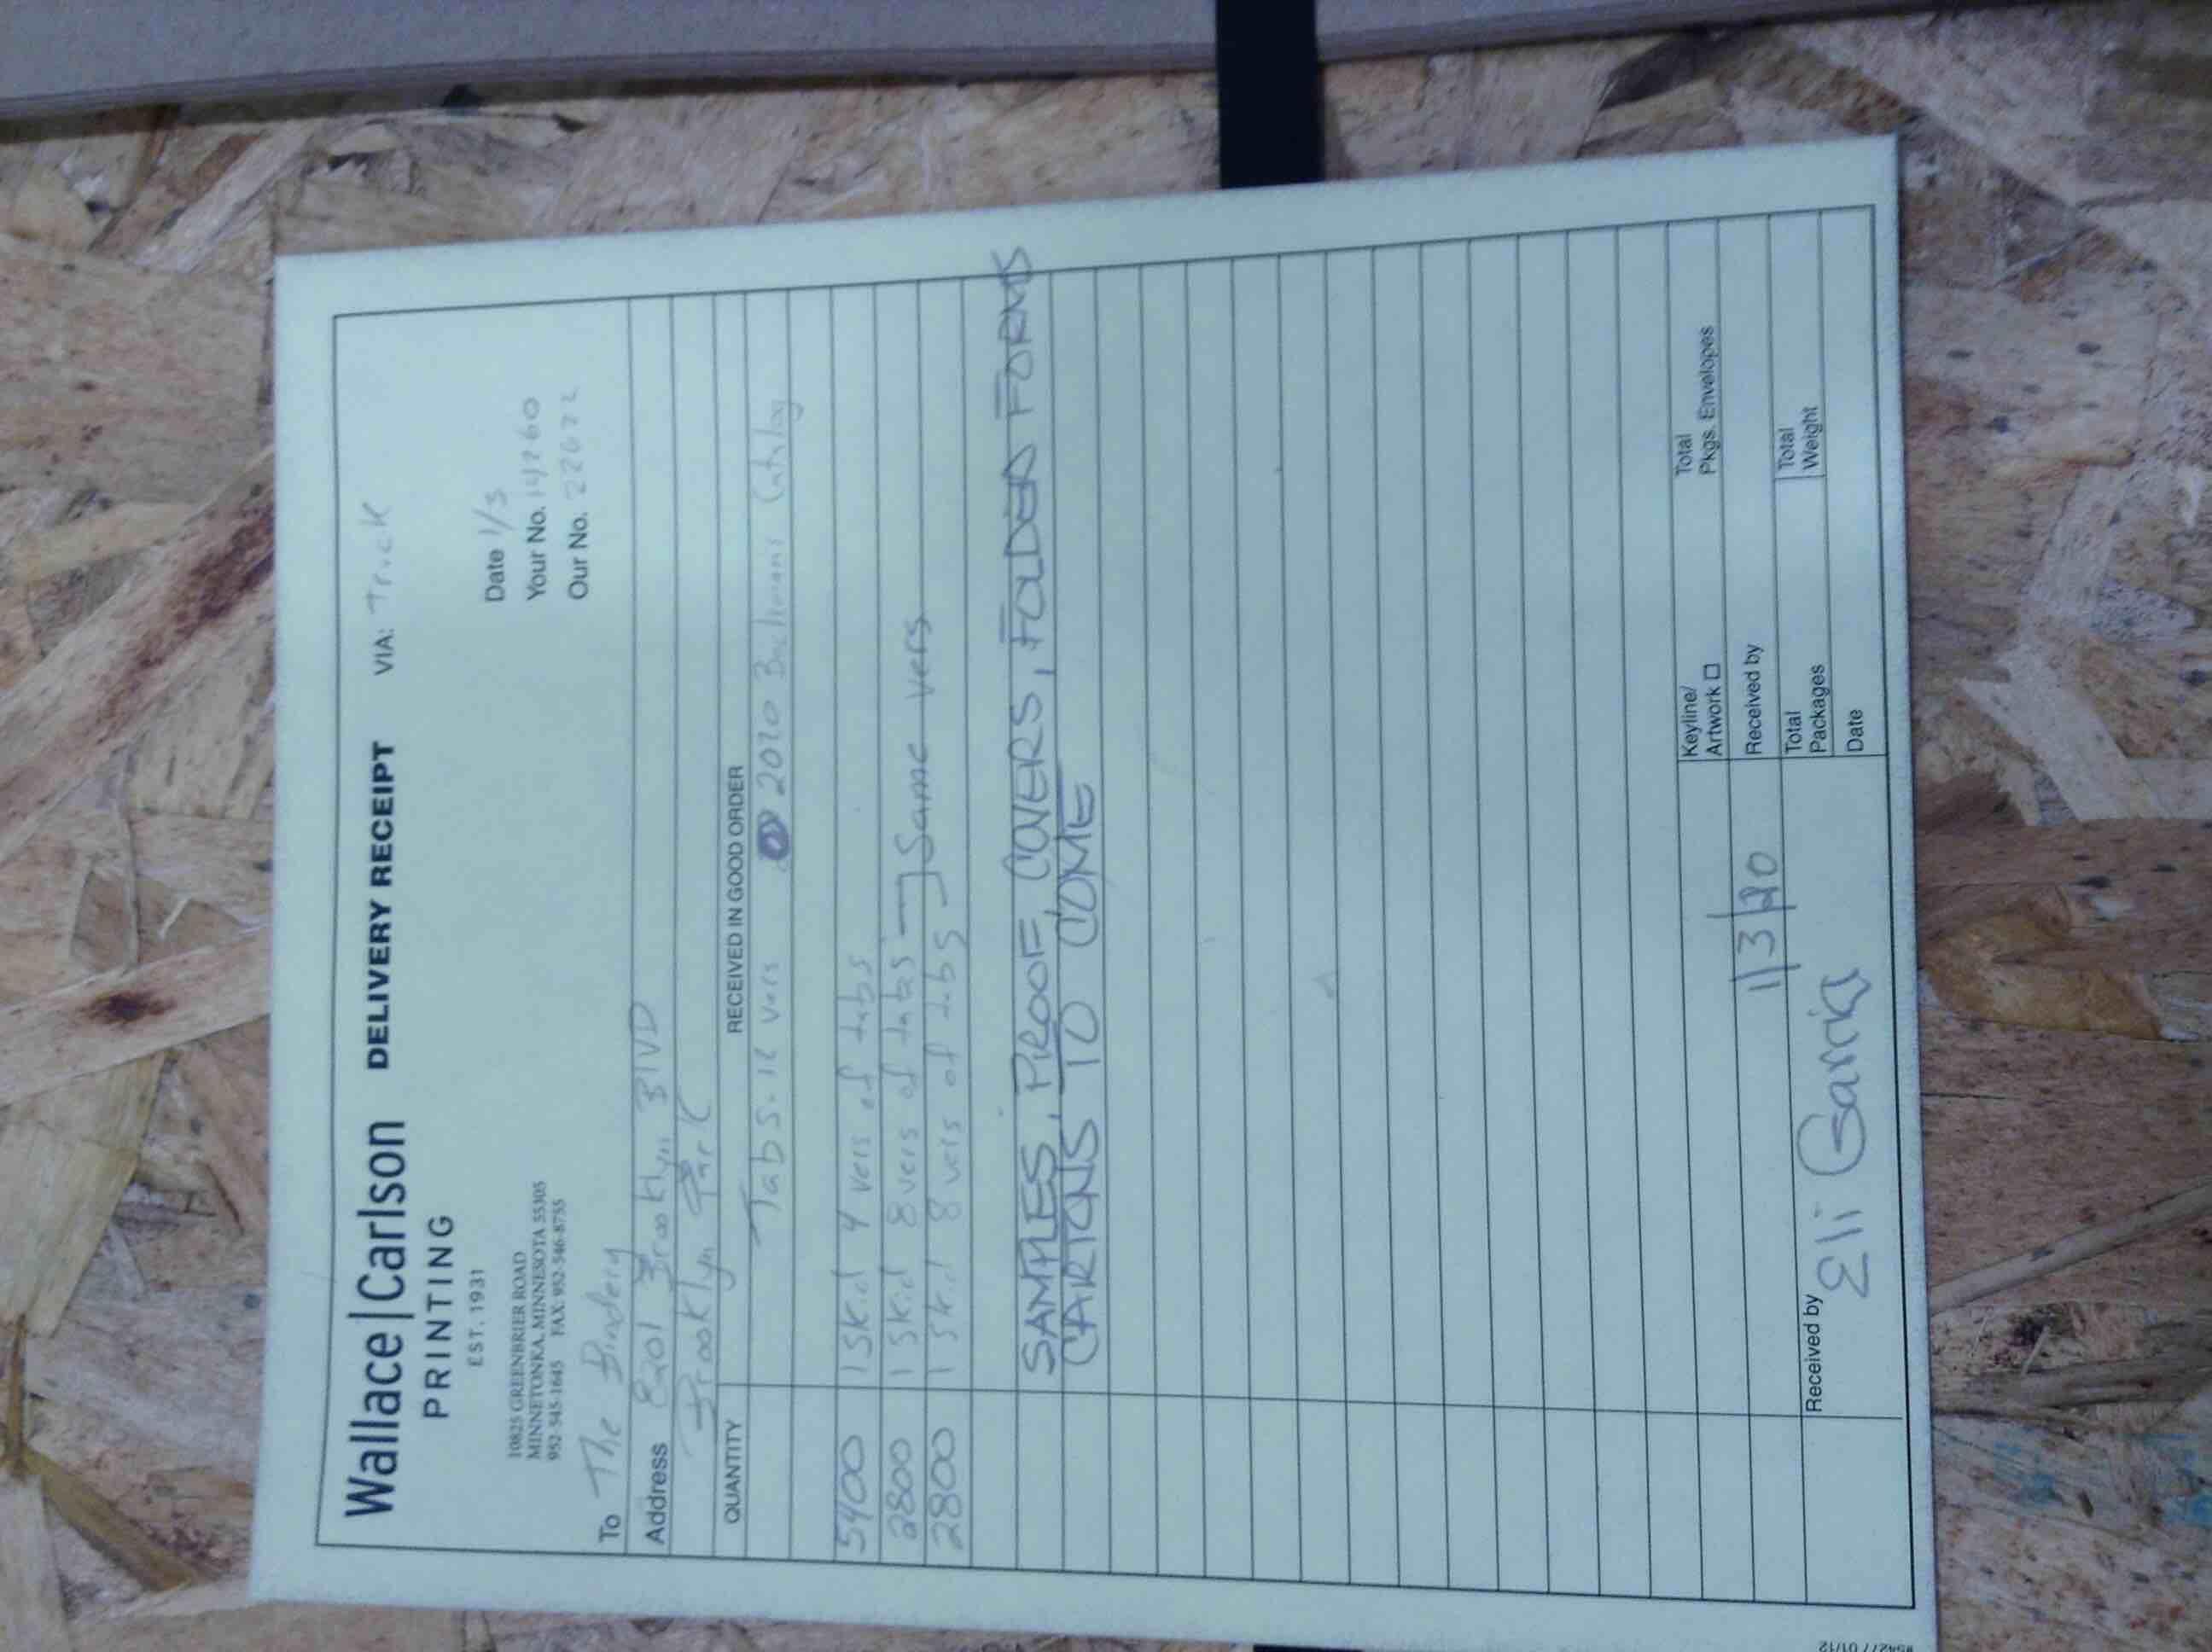 Wallace|Carlson DELIVERY RECEIPT VIA: Truck
PRINTING
EST. 1931
10825 GREENBRIER ROAD
MINNETONKA, MINNESOTA 55305
952-545-1645 FAX: 952-546-8755
Date 1/3
Your No. 14260
Our No. 22672
To The Bindery
Address 8201 Brooklyn BlVD
Brooklyn Park
QUANTITY RECEIVED IN GOOD ORDER
Tabs. 12 vers 2020 Bachmans Catalog
5400 1 skid 4 vers of tabs
2800 1 skid 8 vers of tabs
2800 1 skid 8 vers of tabs
Same vers
SAMPLES, PROOF, COVERS, FOLDER FORMS
CARTONS TO COME
Keyline/
Artwork
Total
Pkgs. Envelopes
Received by
1/3/20
Total
Packages
Total
Weight
Date
Received by Eli Garcia